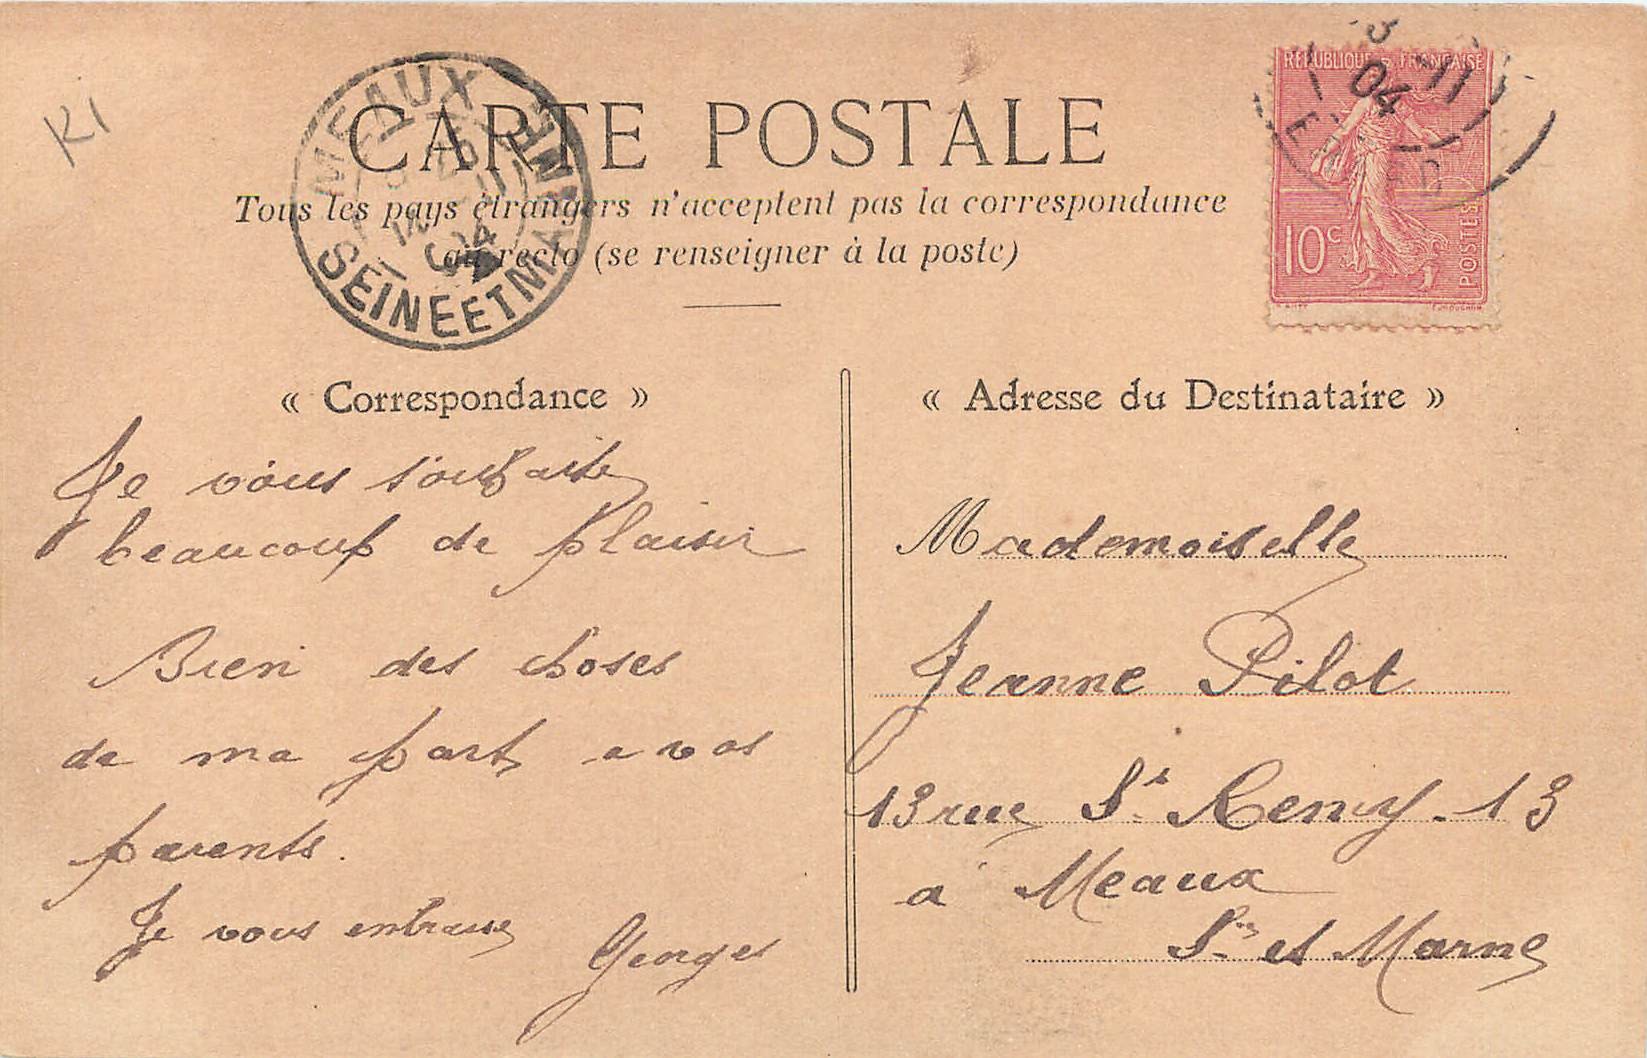 K1
CARTE POSTALE
Tous les pays étrangers n'acceptent pas la correspondance
au recto (se renseigner à la poste)
MEAUX
SEINE ET MARNE
04
REPUBLIQUE FRANÇAISE
10c
POSTES
04
« Correspondance »
Je vous souhaite
beaucoup de plaisir
Bien des choses
de ma part a vos
parents.
Je vous embrasse
Georges
« Adresse du Destinataire »
Mademoiselle
Jeanne Pilot
13 rue St. Remy. 13
a Meaux
S. et Marne